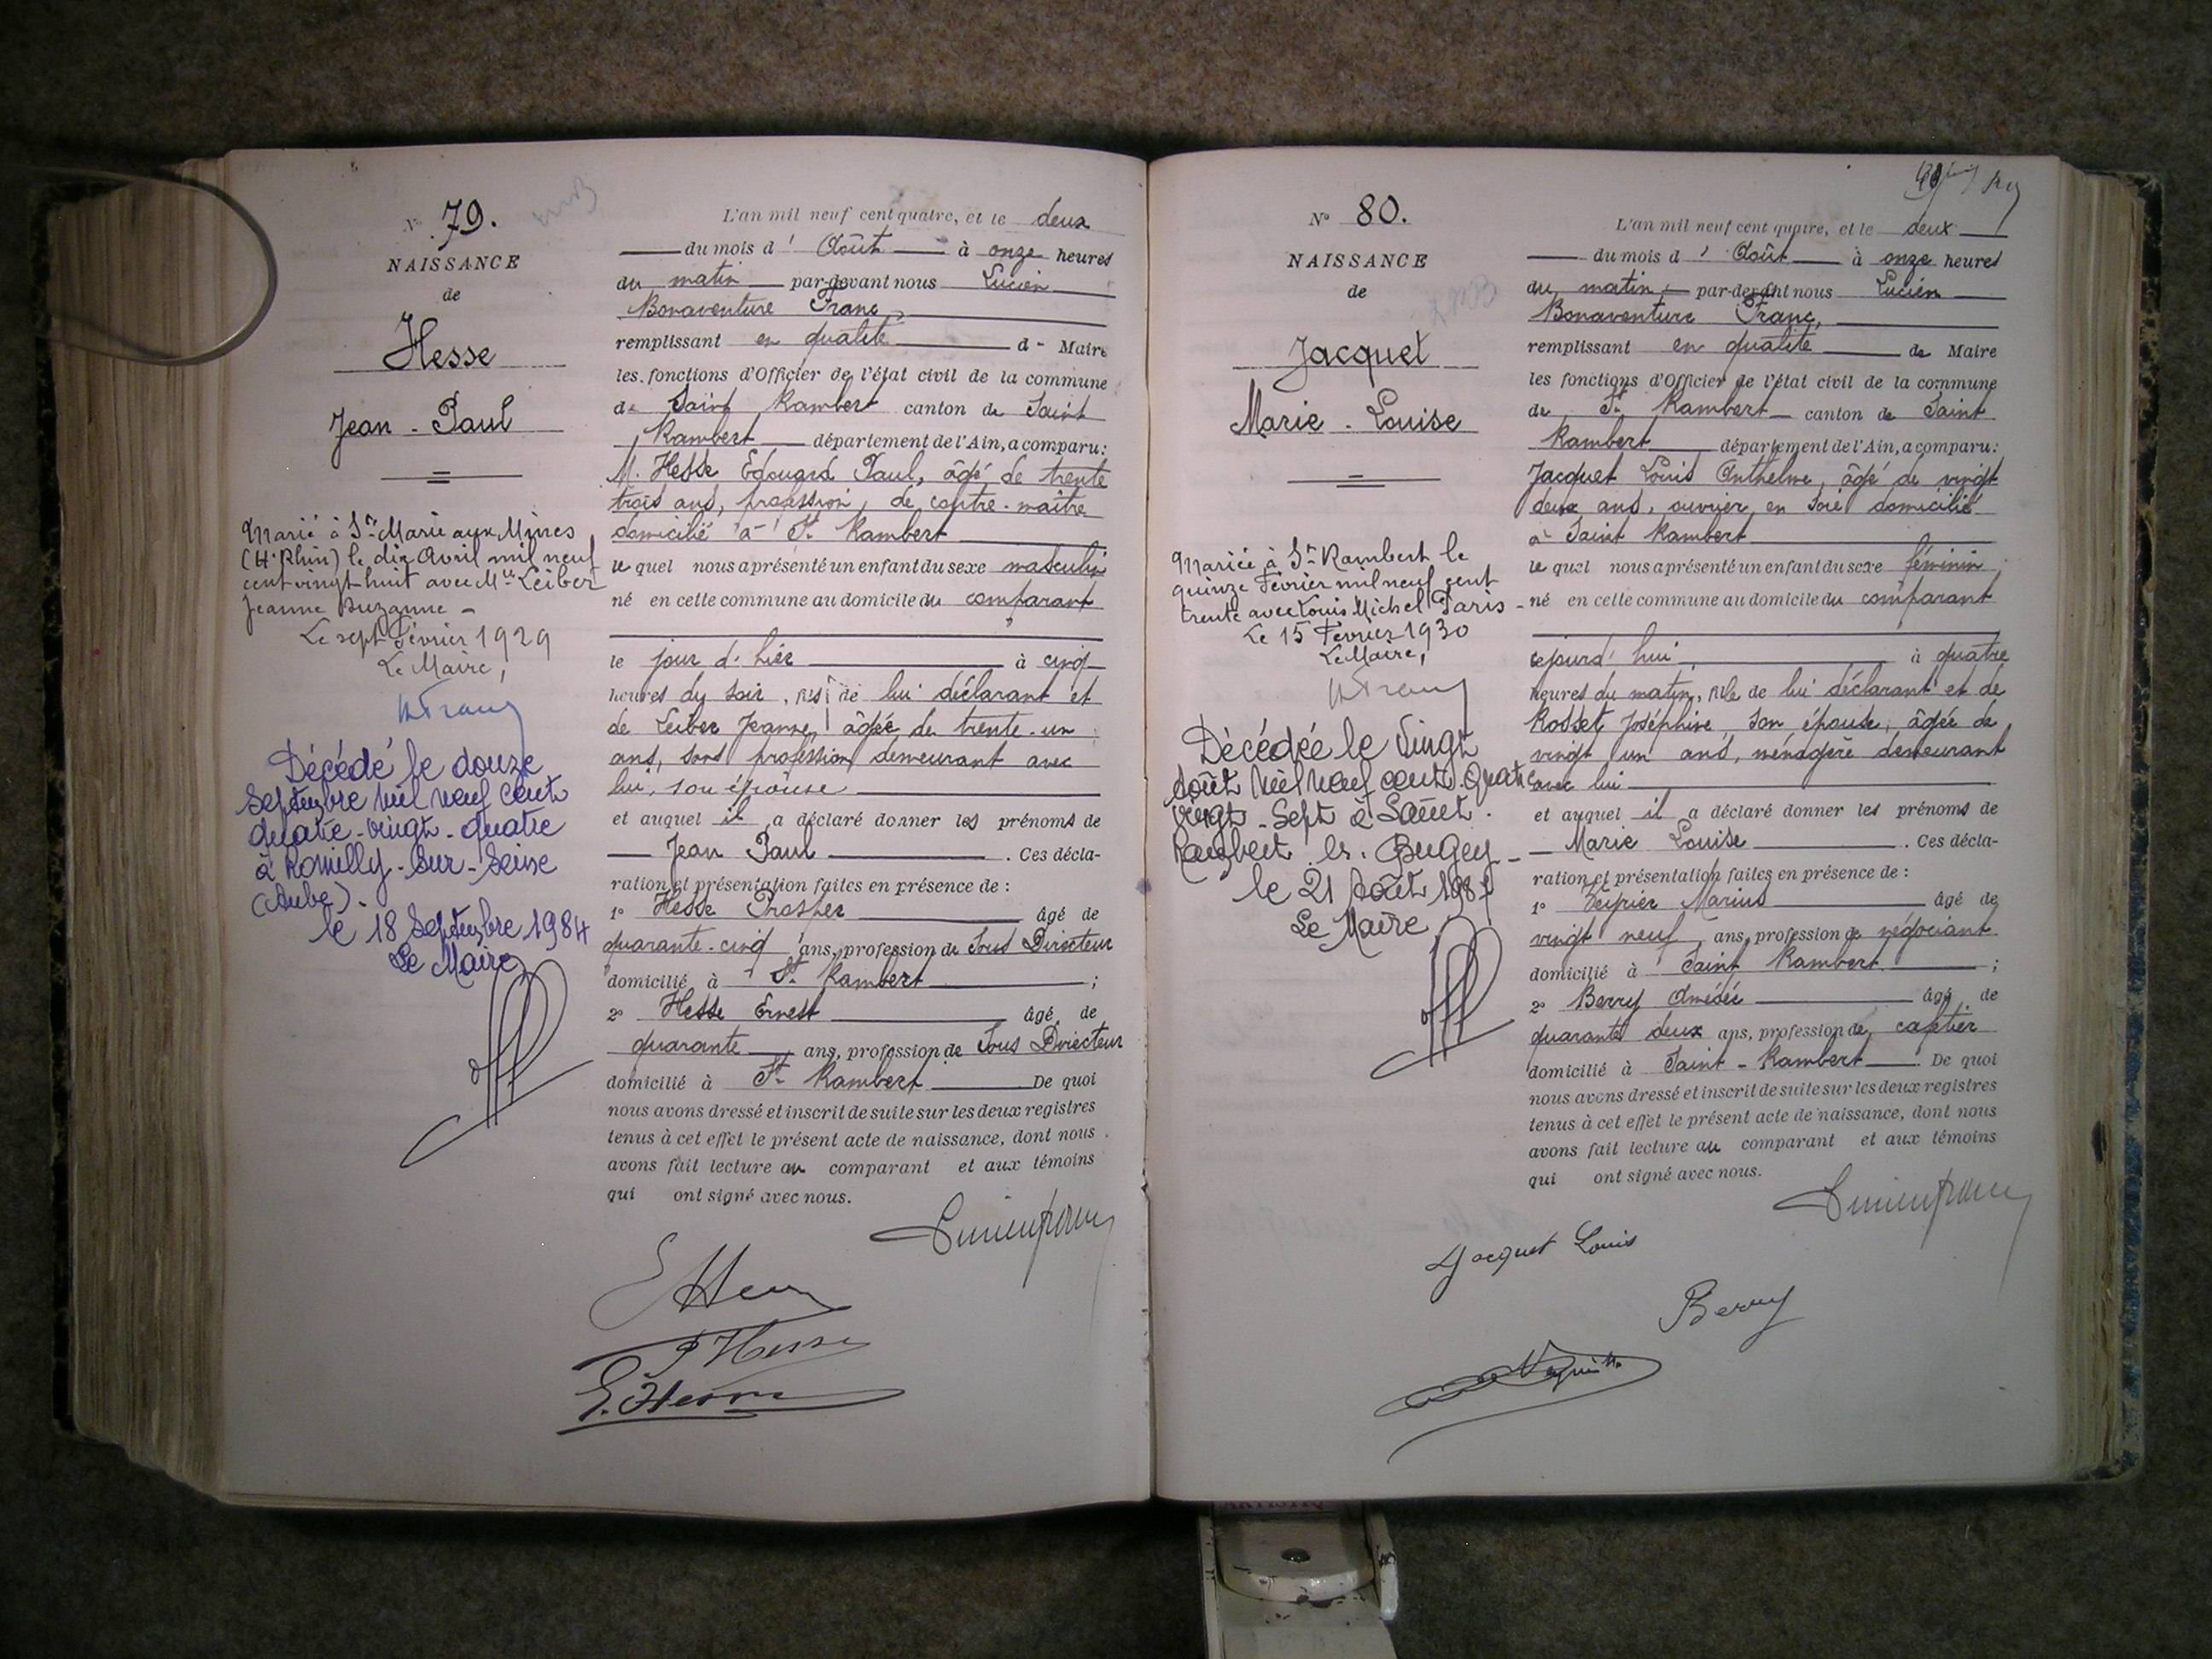 N° 79.
NAISSANCE
de
Hesse
Jean - Paul
Marié à Ste Marie aux Mines
(Ht Rhin) le dix Avril mil neuf
cent vingt huit avec Mlle Leiber
Jeanne Suzanne -
Le sept Février 1929
Le Maire,
Décédé le douze
Septembre mil neuf cent
quatre-vingt-quatre
à Romilly-Sur-Seine
(Aube).
le 18 Septembre 1984
Le Maire
L'an mil neuf cent quatre, et le deux
du mois d' Août à onze heures
du matin par-devant nous Lucien
Bonaventure Franc,
remplissant en qualité de Maire
les fonctions d'Officier de l'état civil de la commune
de Saint Rambert canton de Saint
Rambert département de l'Ain, a comparu:
M. Hesse Edouard Paul, âgé de trente
trois ans, profession, de contre-maître
domicilié à St Rambert
le quel nous a présenté un enfant du sexe masculin
né en cette commune au domicile du comparant
le jour d'hier à cinq
heures du soir, fils de lui déclarant et
de Leiber Jeanne, âgée de trente-un
ans, sans profession demeurant avec
lui, son épouse
et auquel il a déclaré donner les prénoms de
Jean Paul . Ces décla-
ration et présentation faites en présence de :
1° Hesse Prosper âgé de
quarante-cinq ans, profession de Sous Directeur
domicilié à St Rambert ;
2° Hesse Ernest âgé de
quarante ans, profession de Sous Directeur
domicilié à St Rambert De quoi
nous avons dressé et inscrit de suite sur les deux registres
tenus à cet effet le présent acte de naissance, dont nous
avons fait lecture au comparant et aux témoins
qui ont signé avec nous.
Lucien Franc
P Hesse
E. Hesse
N° 80.
NAISSANCE
de
Jacquet
Marie - Louise
Mariée à St Rambert le
quinze Février mil neuf cent
trente avec Louis Michel Paris -
Le 15 Février 1930
Le Maire,
Décédée le Vingt
Août mil neuf cent quatre
vingt-Sept à Saint-
Rambert-en-Bugey -
le 21 Août 1987
Le Maire
L'an mil neuf cent quatre, et le deux
du mois d' Août à onze heures
du matin par-devant nous Lucien
Bonaventure Franc,
remplissant en qualité de Maire
les fonctions d'Officier de l'état civil de la commune
de St Rambert canton de Saint
Rambert département de l'Ain, a comparu:
Jacquet Louis Anthelme, âgé de vingt
deux ans, ouvrier en soie domicilié
à Saint Rambert
le quel nous a présenté un enfant du sexe féminin
né en cette commune au domicile du comparant
cejourd'hui à quatre
heures du matin, fille de lui déclarant et de
Rosset Joséphine, son épouse, âgée de
vingt un ans, ménagère demeurant
avec lui
et auquel il a déclaré donner les prénoms de
Marie Louise . Ces décla-
ration et présentation faites en présence de :
1° Marius âgé de
vingt neuf ans, profession de négociant
domicilié à Saint Rambert ;
2° Berry Amédée âgé de
quarante deux ans, profession de cafetier
domicilié à Saint-Rambert De quoi
nous avons dressé et inscrit de suite sur les deux registres
tenus à cet effet le présent acte de naissance, dont nous
avons fait lecture au comparant et aux témoins
qui ont signé avec nous.
Lucien Franc
Jacquet Louis
Berry